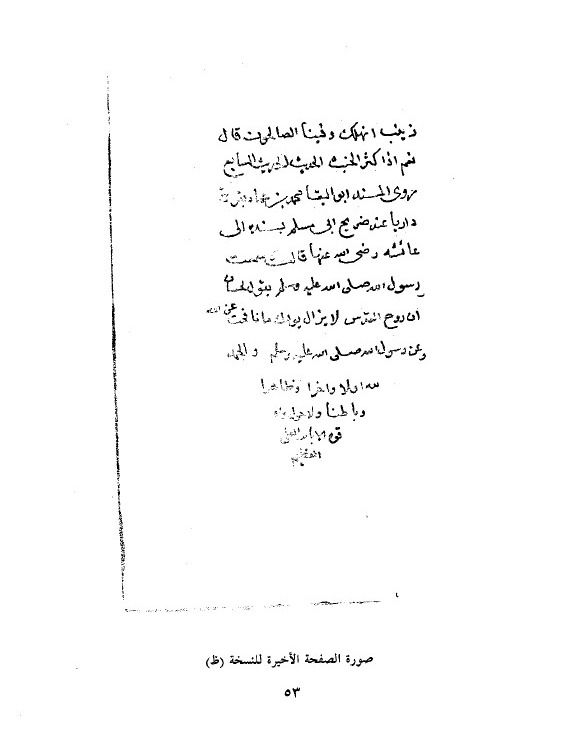 زينب انهلك وفينا الصالحون قال
نعم اذا كثر الخبث الحديث السابع
روى المسند ابو البقا محمد بن
داريا عند ضريح ابي مسلم بسنده الى
عائشه رضي الله عنها قالت سمعت
رسول الله صلى الله عليه وسلم يقول لحسان
ان روح القدس لا يزال يويدك ما نافحت عن الله
وعن رسول الله صلى الله عليه وسلم والحمد
لله اولا واخرا وظاهرا
وباطنا ولا حول ولا
قوة الا بالله العلي
العظيم
صورة الصفحة الأخيرة للنسخة (ظ)
٥٣